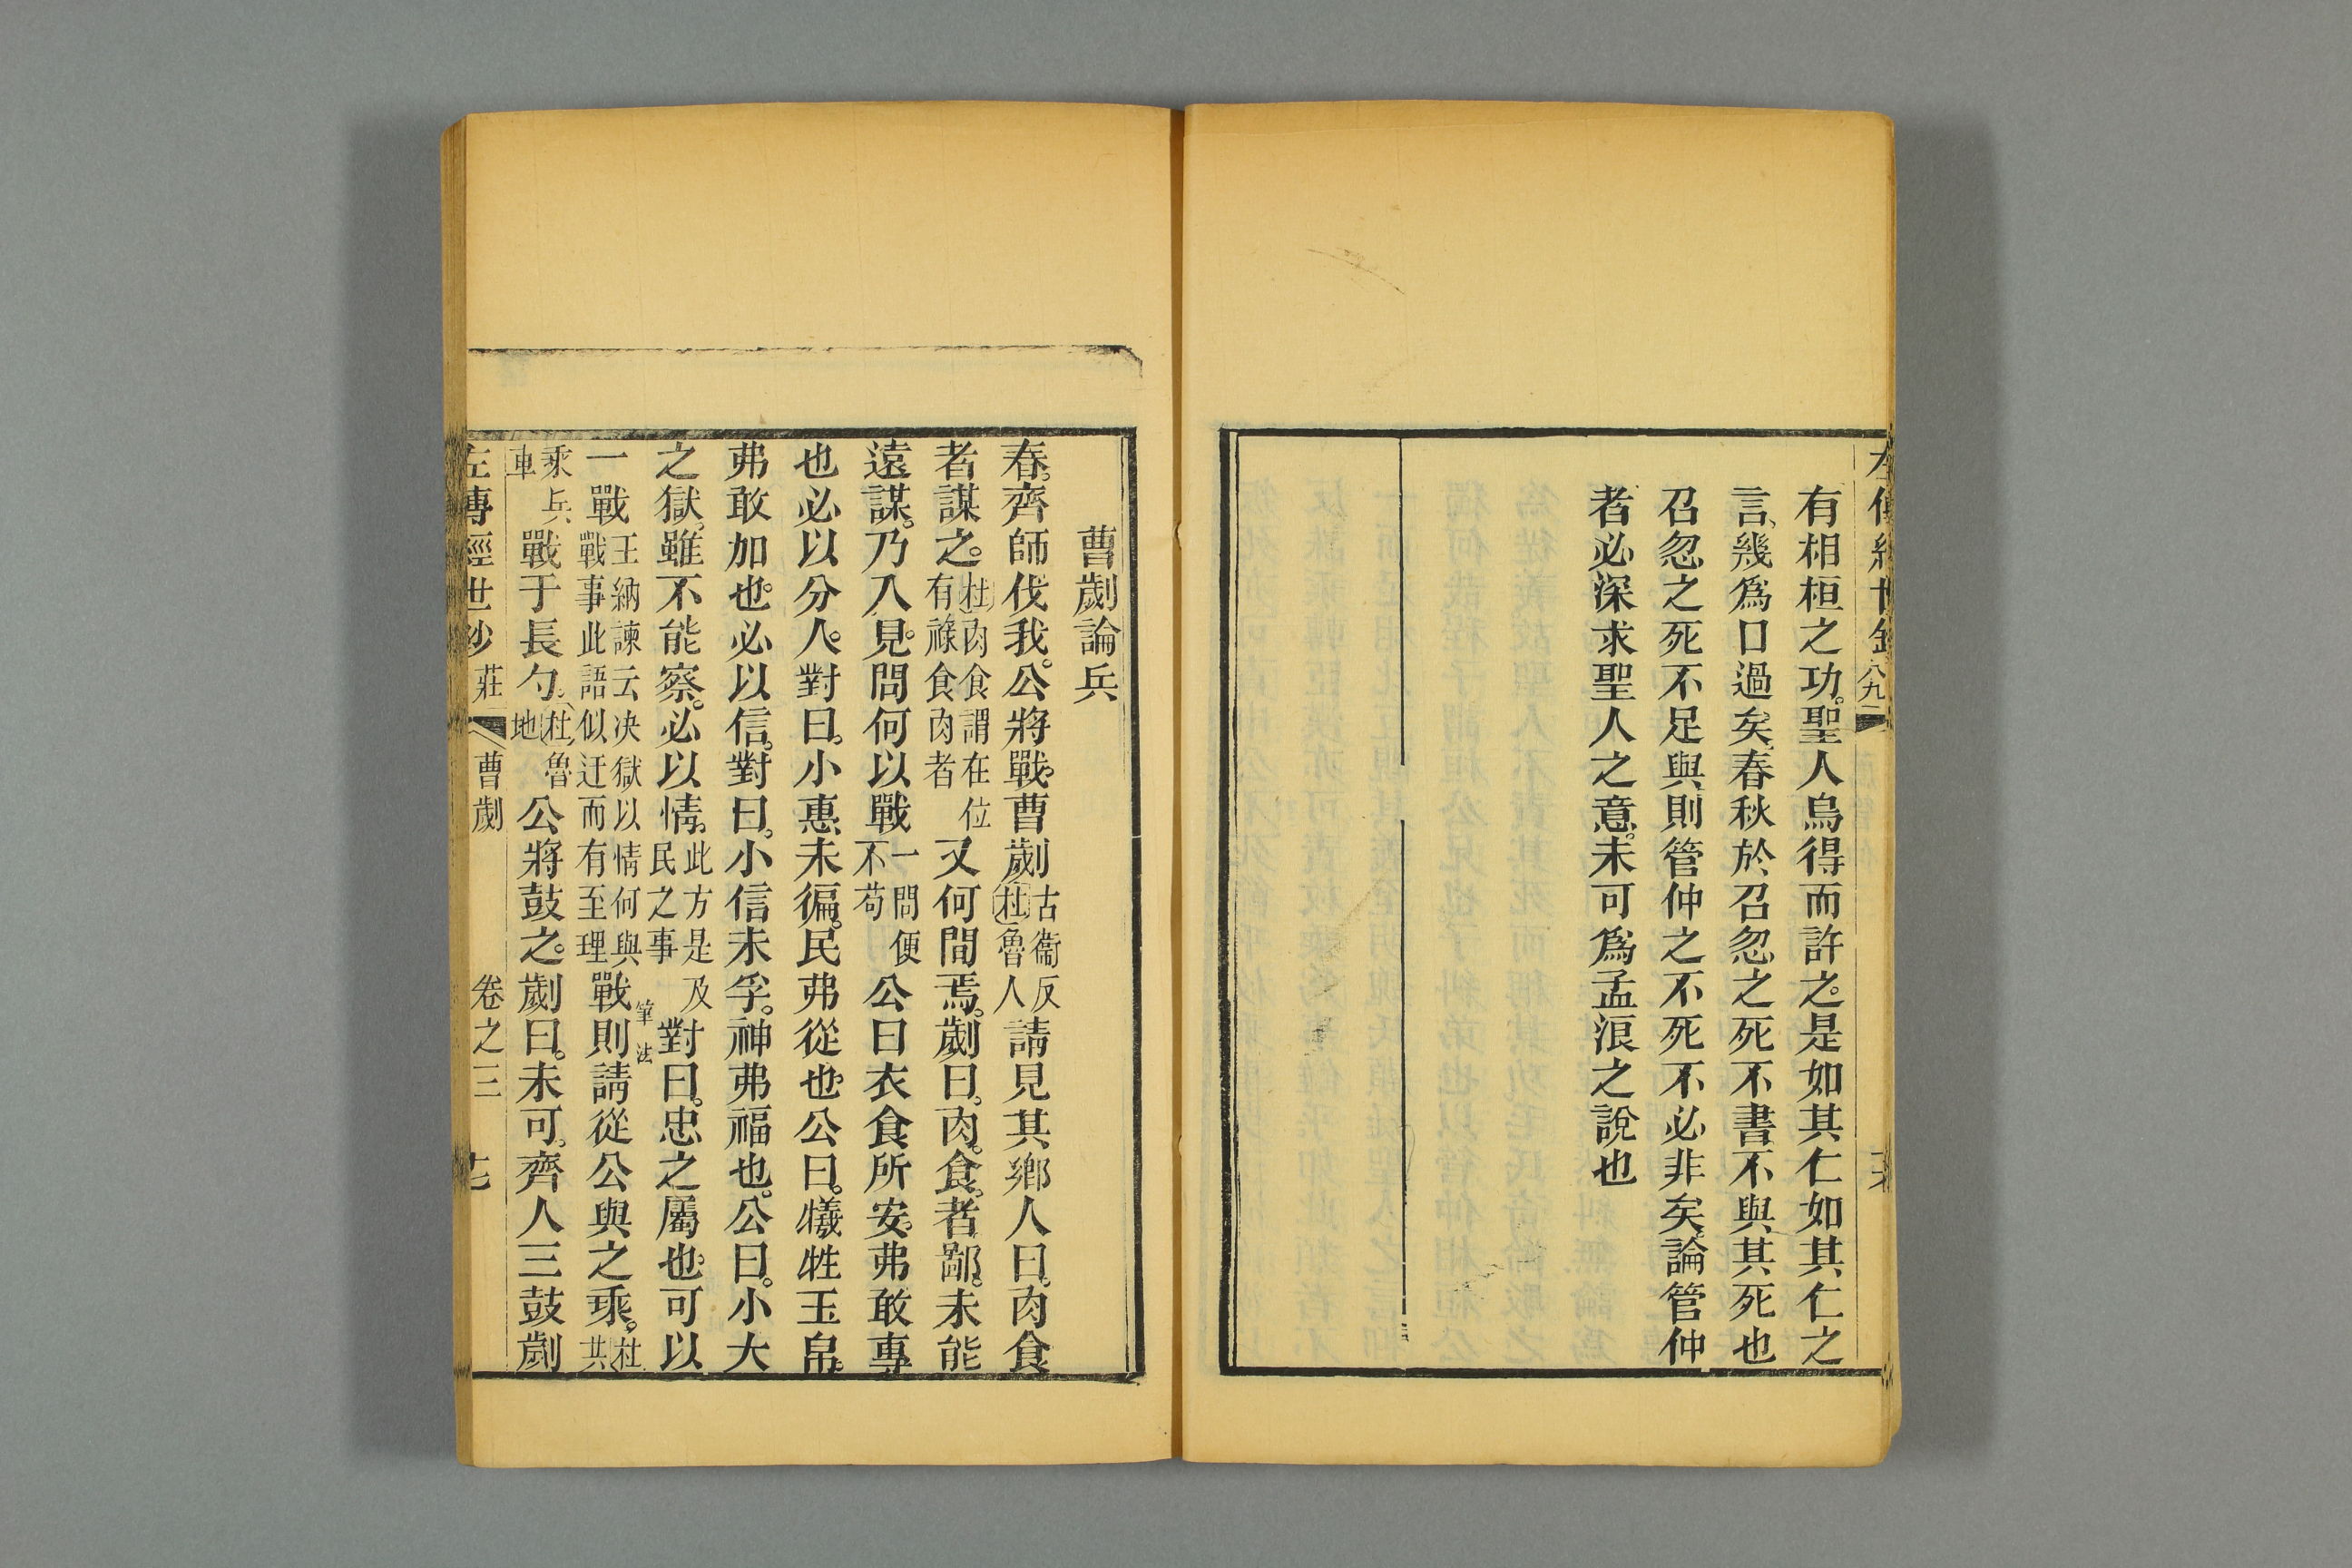 有相桓之功聖人烏得而許之是如其仁如其仁之
言幾爲口過矣春秋於召忽之死不書不與其死也
召忽之死不足與則管仲之不死不必非矣論管仲
者必深求聖人之意未可爲孟浪之說也
曹劌論兵
春齊師伐我公將戰曹劌古衞反杜魯人請見其鄉人曰肉食
者謀之杜肉食謂在位有祿食肉者又何間焉劌曰肉食者鄙未能
遠謀乃入見問何以戰一問便不苟公曰衣食所安弗敢專
也必以分人對曰小惠未徧民弗從也公曰犧牲玉帛
弗敢加也必以信對曰小信未孚神弗福也公曰小大
之獄雖不能察必以情此方是及民之事對曰忠之屬也可以
一戰王納諫云决獄以情何與戰事此語似迂而有至理戰則請從筆法公與之乘杜共
乘兵車戰于長勺杜魯地公將鼓之劌曰未可齊人三鼓劌
左傳經世鈔 莊 曹劌 卷之三 十七